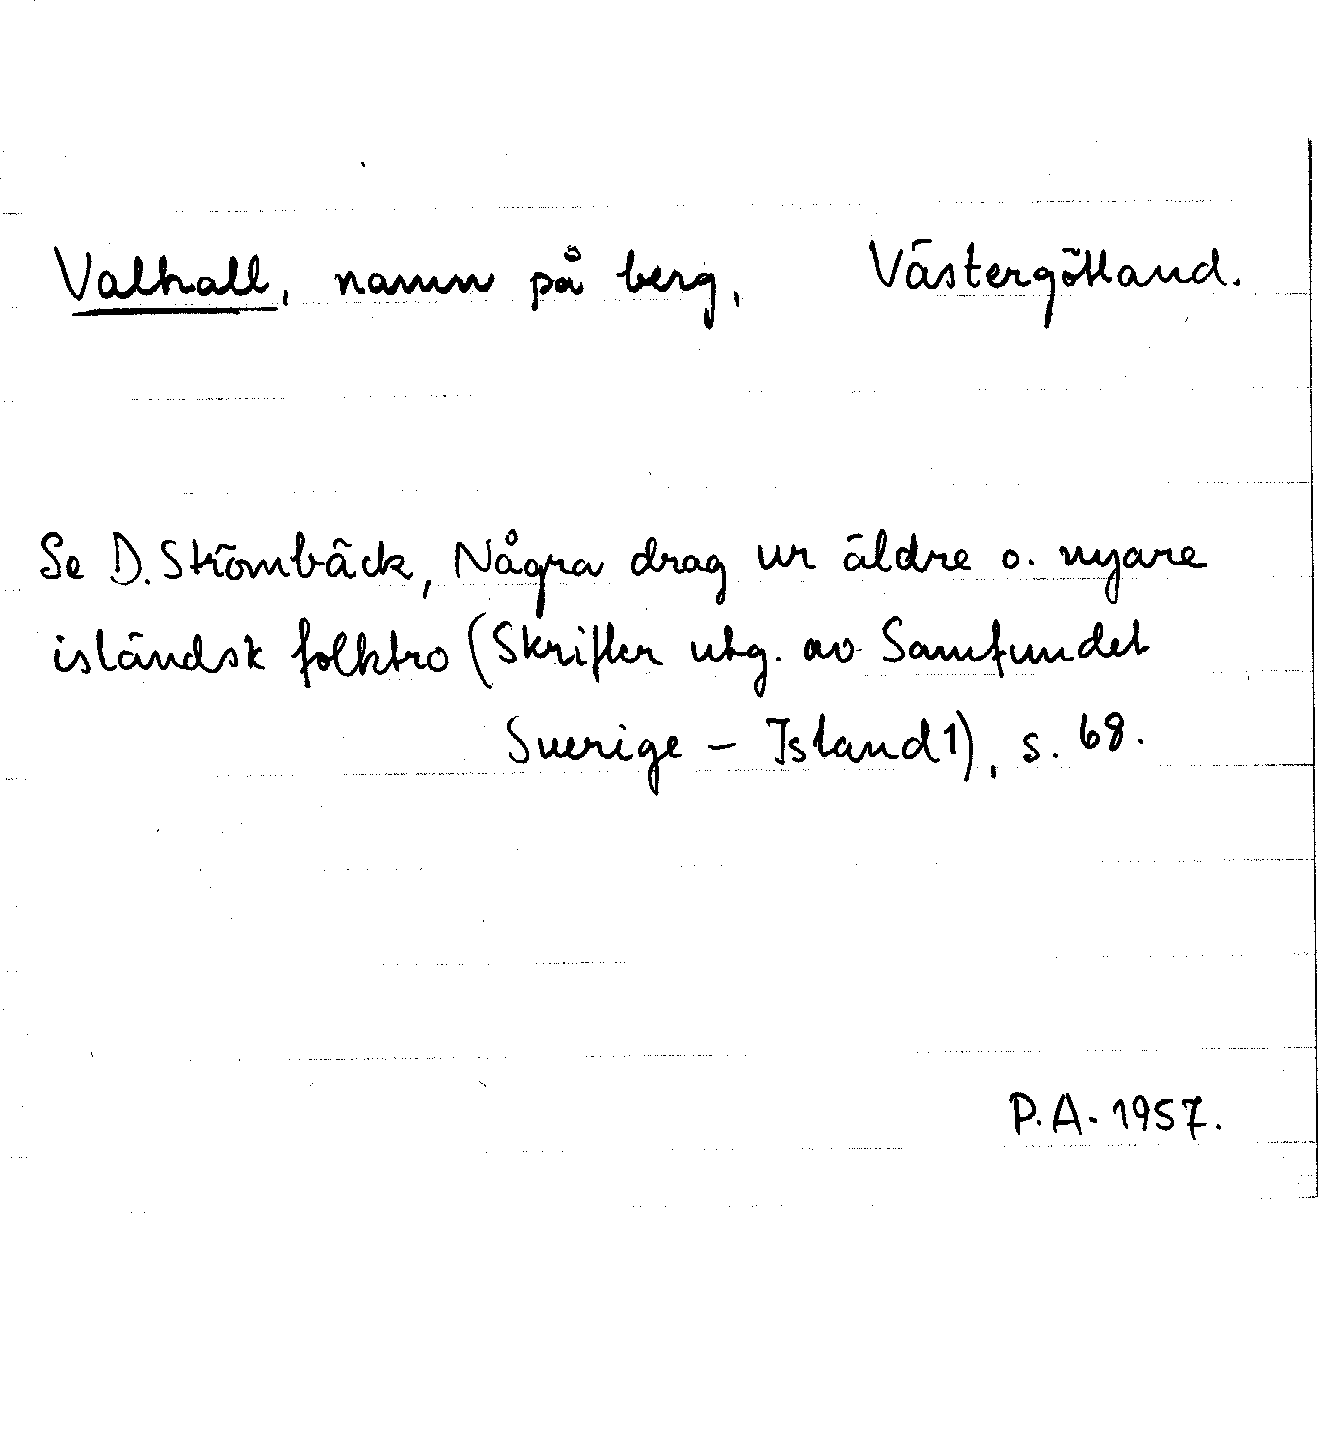 Valhall, namn på berg, Västergötland.
Se D. Strömbäck, Några drag ur äldre o. nyare
isländsk folktro (Skrifter utg. av Samfundet
Sverige - Island 1), s. 68.
P.A. 1957.